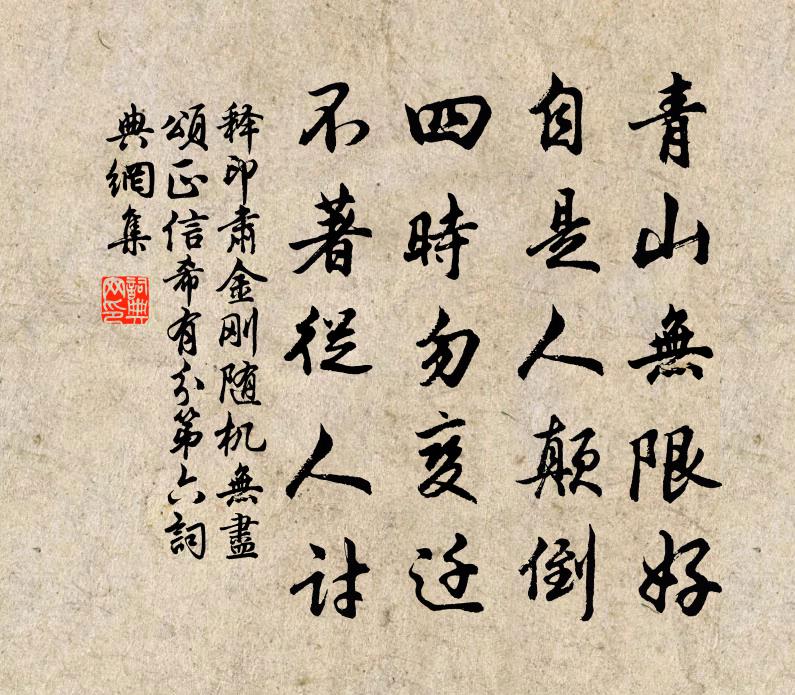 青山無限好
自是人顛倒
四時勿变迁
不著從人討
释印肃金刚随机無盡
頌正信希有分第六詞
典網集
詞典
网印